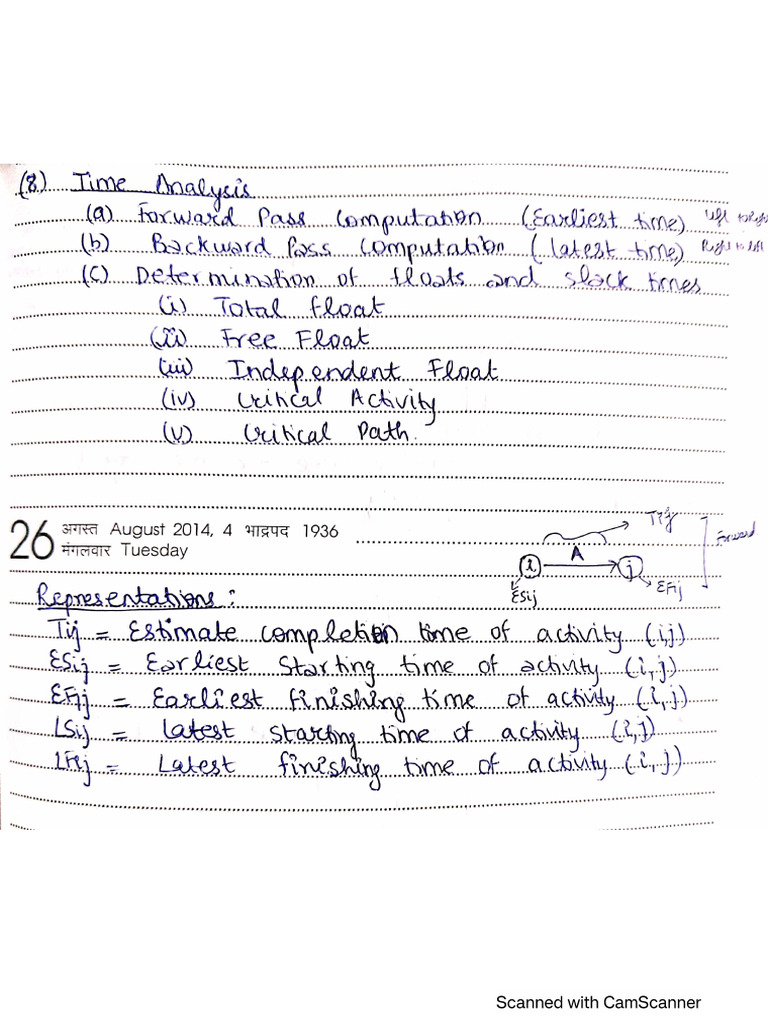 (8) Time Analysis
(a) Forward Pass Computation (Earliest time) Left to Right
(b) Backward Pass Computation (latest time) Right to left
(c) Determination of floats and slack times
(i) Total float
(ii) Free Float
(iii) Independent Float
(iv) Critical Activity
(v) Critical Path.
26 अगस्त August 2014, 4 भाद्रपद 1936
मंगलवार Tuesday
Tij
A
i j
ESij EFij
Forward
Representations:
Tij = Estimate completion time of activity (ij)
ESij = Earliest Starting time of activity (i,j)
EFij = Earliest finishing time of activity (i,j)
LSij = latest starting time of activity (i,j)
LFij = Latest finishing time of activity (i,j)
Scanned with CamScanner